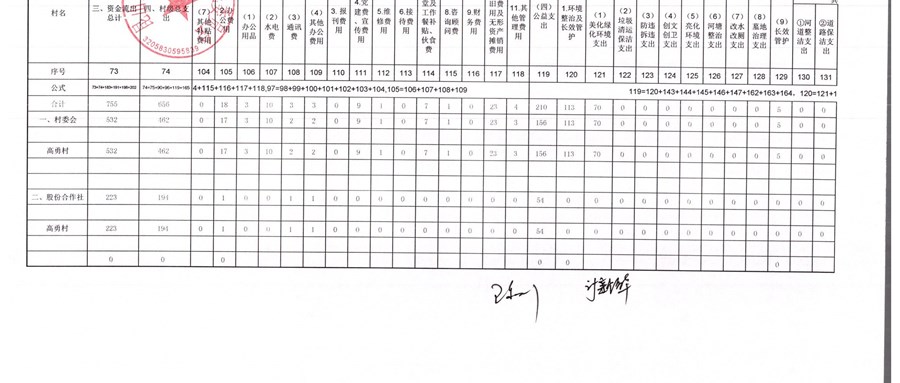 村名 三、资金流出总计 四、村级总支出 (7)其他补贴费用 2.办公费用 (1)办公用品 (2)水电费 (3)通讯费 (4)其他办公费用 3.报刊费用 4.党建费、宣传费用 5.维修费 6.接待费 堂及工作餐补贴、伙食费 8.咨询顾问费 9.财务费用 旧费用及无形资产摊销费用 11.其他管理费用 (四)公益支出 1.环境整治及长效管护 (1)美化绿化环境支出 (2)垃圾清运保洁支出 (3)防违拆违支出 (4)创文创卫支出 (5)亮化环境支出 (6)河塘整治支出 (7)改水改厕支出 (8)墓地治理支出 (9)长效管护 ①河道整洁支出 ②道路保洁支出
3205830595839
序号 73 74 104 105 106 107 108 109 110 111 112 113 114 115 116 117 118 119 120 121 122 123 124 125 126 127 128 129 130 131
公式 73=74+183+191+198+202 74=75+90+96+119+165 4+115+116+117+118,97=98+99+100+101+102+103+104,105=106+107+108+109 119=120+143+144+145+146+147+162+163+164, 120=121+1
合计 755 656 0 18 3 10 3 3 0 9 1 0 7 1 0 23 4 210 113 70 0 0 0 0 0 0 0 5 0 0
一、村委会 532 462 0 17 3 10 2 2 0 9 1 0 7 1 0 23 3 156 113 70 0 0 0 0 0 0 0 5 0 0
高勇村 532 462 0 17 3 10 2 2 0 9 1 0 7 1 0 23 3 156 113 70 0 0 0 0 0 0 0 5 0 0
二、股份合作社 223 194 0 1 0 0 1 1 0 0 0 0 0 0 0 0 0 54 0 0 0 0 0 0 0 0 0 0 0 0
高勇村 223 194 0 1 0 0 1 1 0 0 0 0 0 0 0 0 0 54 0 0 0 0 0 0 0 0 0 0 0 0
0 0 0 0 0 0